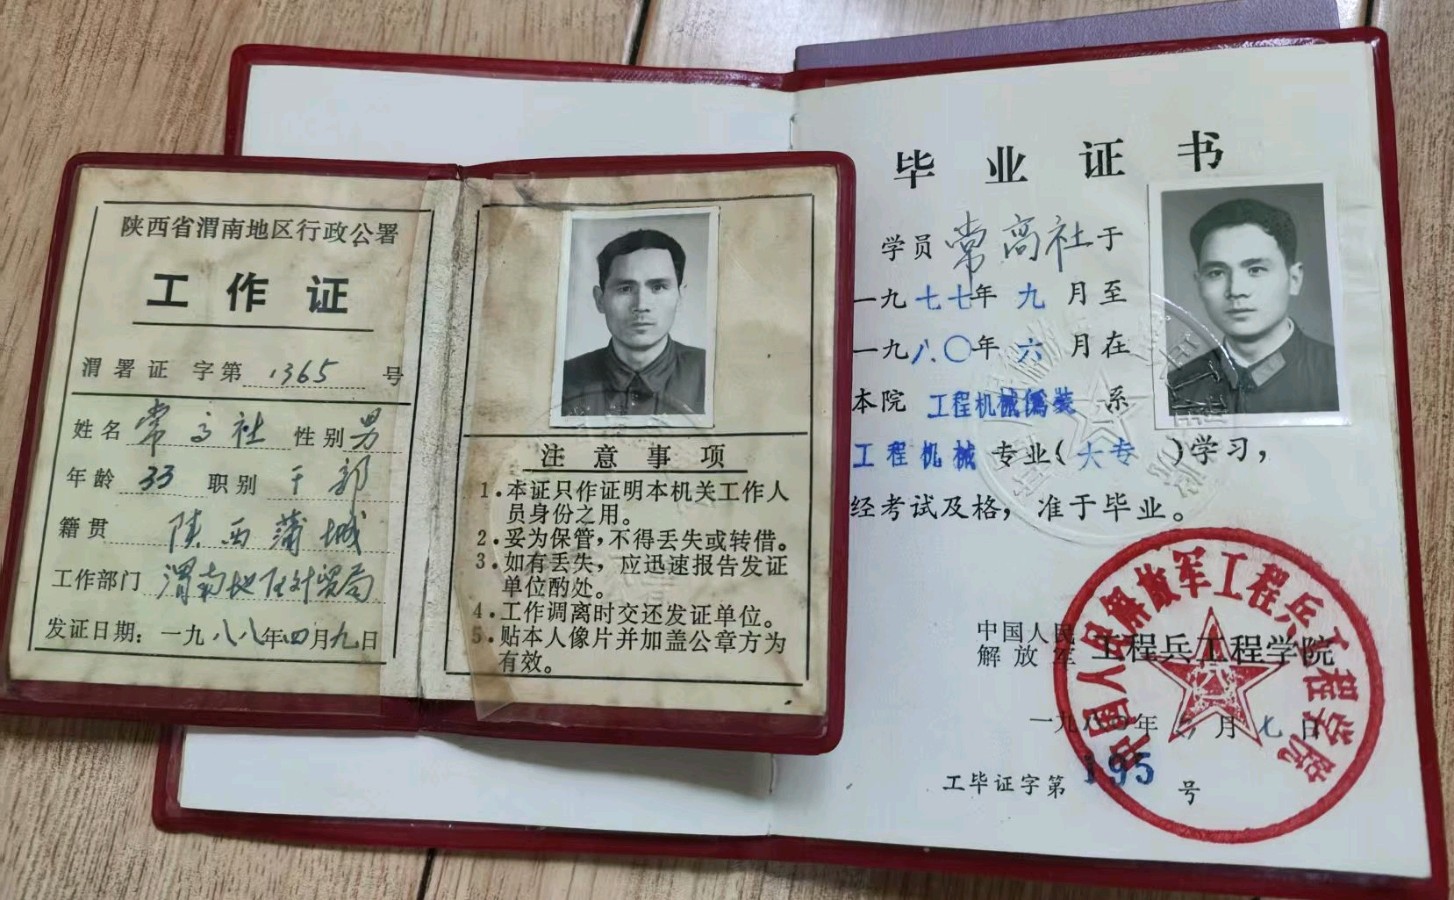 陕西省渭南地区行政公署
工作证
渭署证 字第 1365 号
姓名 常高社 性别 男
年龄 33 职别 干部
籍贯 陕西蒲城
工作部门 渭南地区计贸局
发证日期：一九八八年四月九日
注意事项
1.本证只作证明本机关工作人
员身份之用。
2.妥为保管，不得丢失或转借。
3.如有丢失，应迅速报告发证
单位酌处。
4.工作调离时交还发证单位。
5.贴本人像片并加盖公章方为
有效。
毕业证书
学员常高社于
一九七七年九月至
一九八〇年六月在
本院 工程机械伪装 系
工程机械 专业(大专)学习，
经考试及格，准于毕业。
中国人民
解放军 工程兵工程学院
一九八〇年 月七日
工毕证字第 195 号
中国人民解放军工程兵工程学院